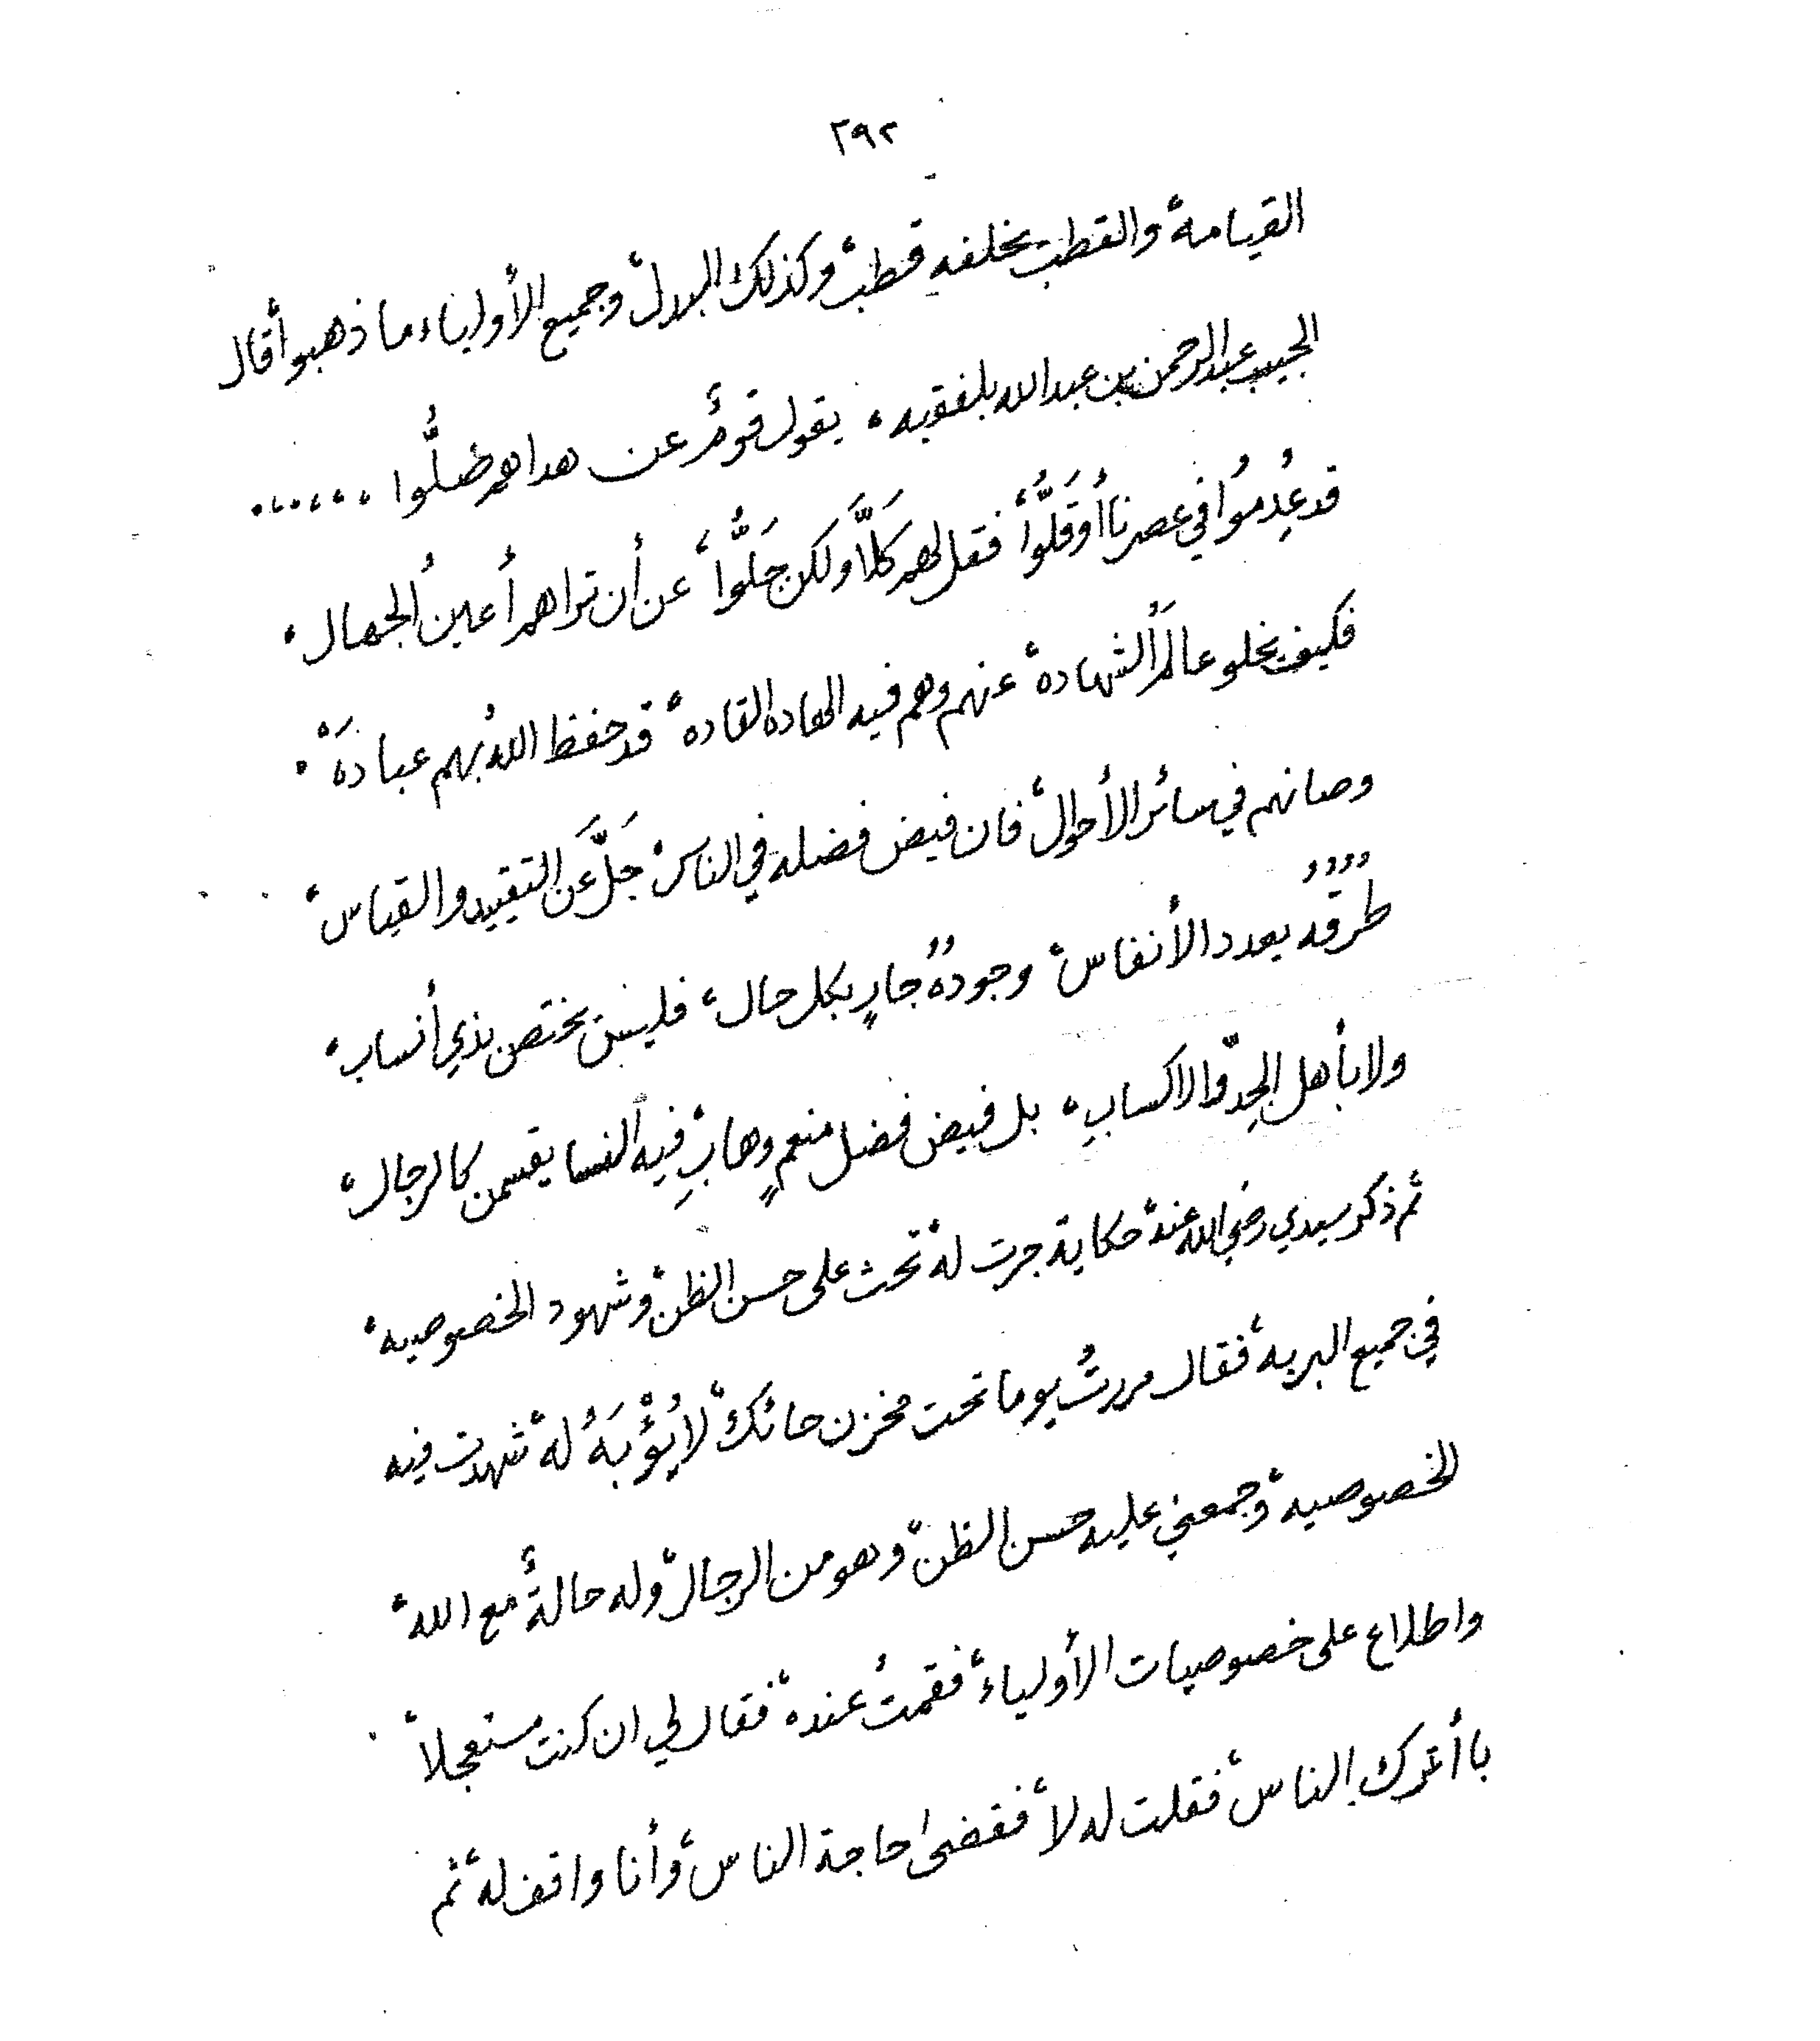 ٢٩٢
القيامة، والقطب يخلفه قطب، وكذلك البدل، وجميع الأولياء ما ذهبوا، قال
الحبيب عبدالرحمن بن عبدالله بلفقيه، يقول قومٌ عن هداهم ضلُّوا ،،،،،،،
قد عُدِموُا في عصرنا أوقَلُّوا، فقل لهم كَلاَّ ولكن جَلُّوا، عن أن تراهم أعينُ الجهال،
فكيف يخلو عالمُ الشهاده، عنهم وهم فيه الهاده القاده، قد حفظ اللهُ بهم عبادَه،
وصانهم في سائر الأحوال، فان فيض فضله في الناس، جَلَّ عَن التقييد والقياس،
طُرْقُهُ بعدد الأنفاس، وجودهُ جارٍ بكل حال، فليس يختص بذي أنساب،
ولا بأهل الجِدّ والاكسابِ، بل فيض فضل منعمٍ وهابِ، فيه النسا يقسمن كالرجال،
ثم ذكر سيدي رضي الله عنه، حكاية جرت له، تحث على حسن الظن، وشهود الخصوصيه،
في جميع البريه، فقال مررتُ يوما تحت مخزن حائك، لايُؤْبَهُ له، شهدت فيه
الخصوصيه، وجمعني عليه حسن الظن، وهو من الرجال، وله حالةٌ مع الله،
واطلاع على خصوصيات الأولياء، فقمتُ عنده، فقال لي ان كنت مستعجلا،
با أترك الناس، فقلت له لا، فقضى حاجة الناس، وأنا واقف له، ثم